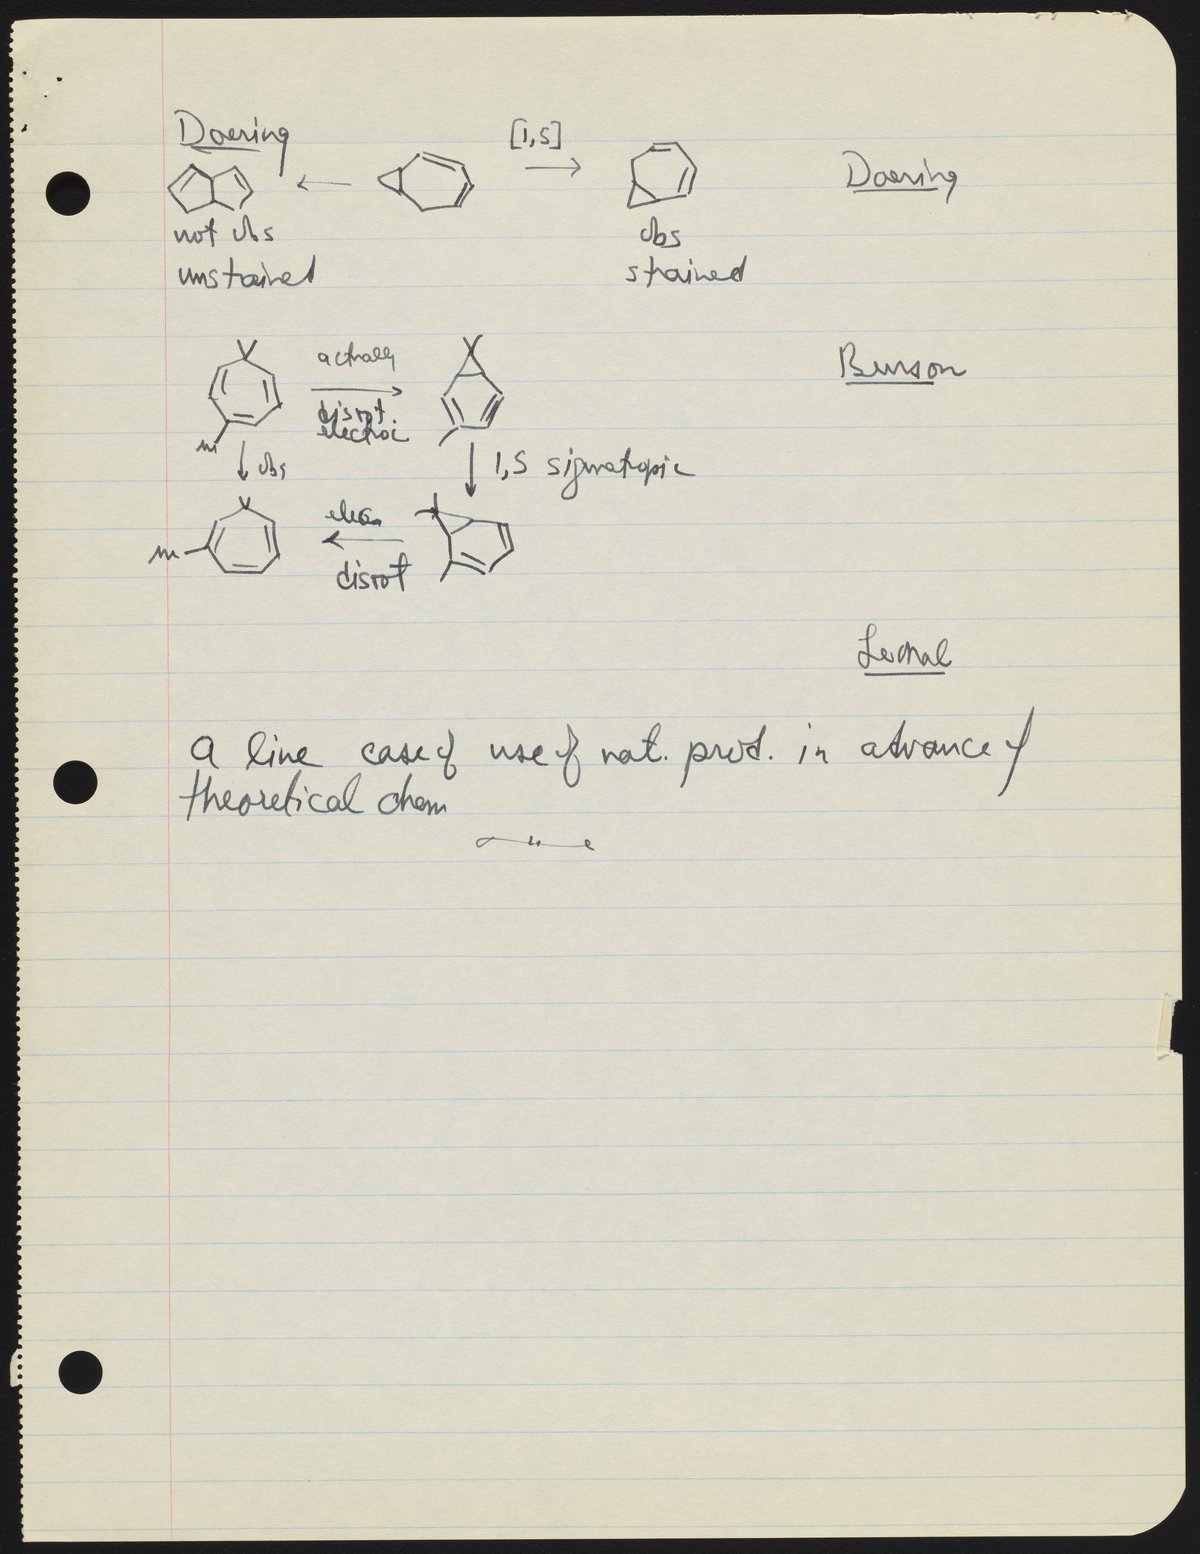 Doering
[1,5]
Doering
not obs
obs
unstained
strained
actually
Berson
disrot.
electroc
m
obs
1,5 sigmatropic
elec.
m
disrot
Lemal
A fine case of use of nat. prod. in advance of
theoretical chem